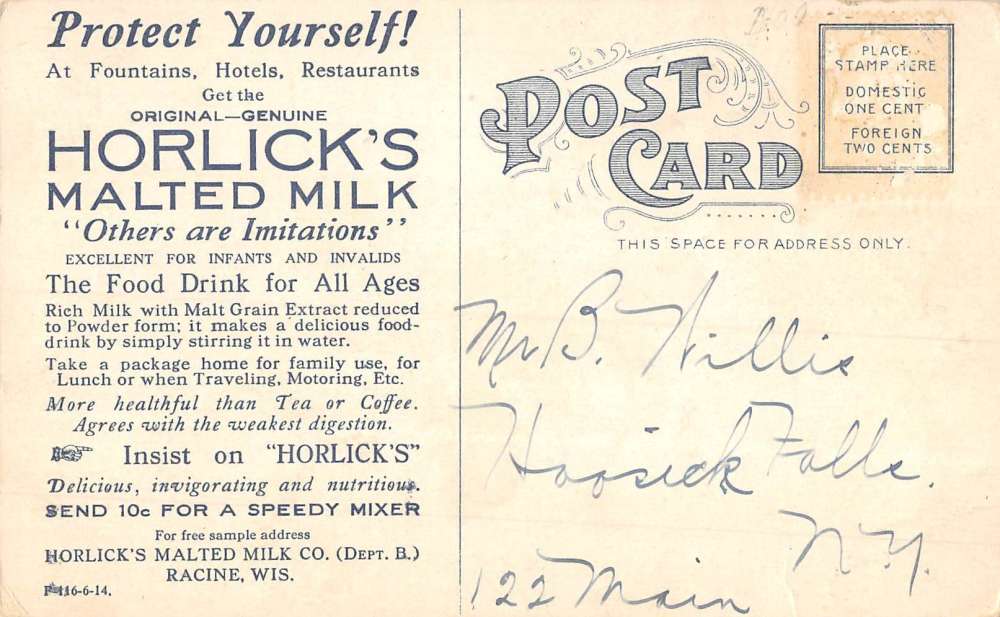 Protect Yourself!
At Fountains, Hotels, Restaurants
Get the
ORIGINAL—GENUINE
HORLICK'S
MALTED MILK
"Others are Imitations"
EXCELLENT FOR INFANTS AND INVALIDS
The Food Drink for All Ages
Rich Milk with Malt Grain Extract reduced
to Powder form; it makes a delicious food-
drink by simply stirring it in water.
Take a package home for family use, for
Lunch or when Traveling, Motoring, Etc.
More healthful than Tea or Coffee.
Agrees with the weakest digestion.
Insist on "HORLICK'S"
Delicious, invigorating and nutritious.
SEND 10c FOR A SPEEDY MIXER
For free sample address
HORLICK'S MALTED MILK CO. (DEPT. B.)
RACINE, WIS.
116-6-14.
POST
CARD
THIS SPACE FOR ADDRESS ONLY.
PLACE
STAMP HERE
DOMESTIC
ONE CENT
FOREIGN
TWO CENTS
Mr B. Willis
Hoosick Falls.
N.Y.
122 Main